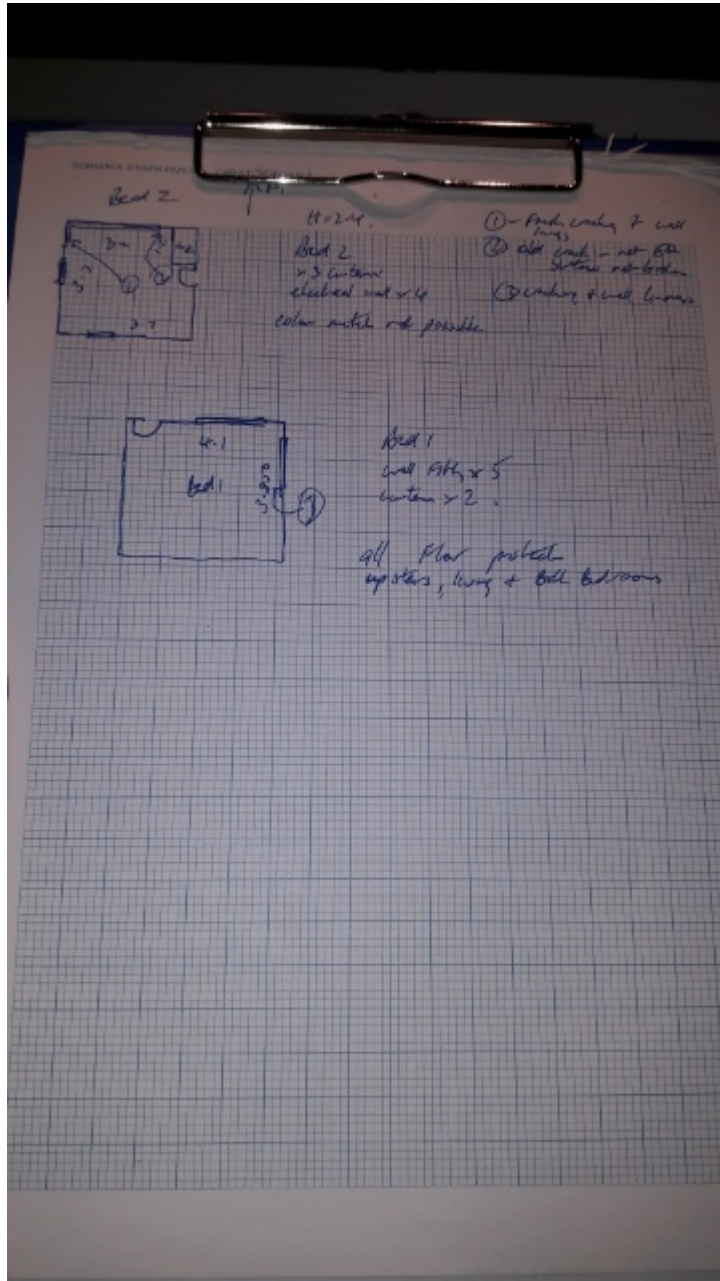 Bed 2
N
H=2.4
① - Fresh cracking + wall
linings
② old crack - not
surface not broken
③ cracking + wall linings
3.4
①
3.7
Bed 2
x 3 curtains
electrical wall x 4
colour match not possible
4.1
Bed 1
③
Bed 1
wall x 5
curtains x 2
all floor protect
upstairs, living + Both Bedrooms